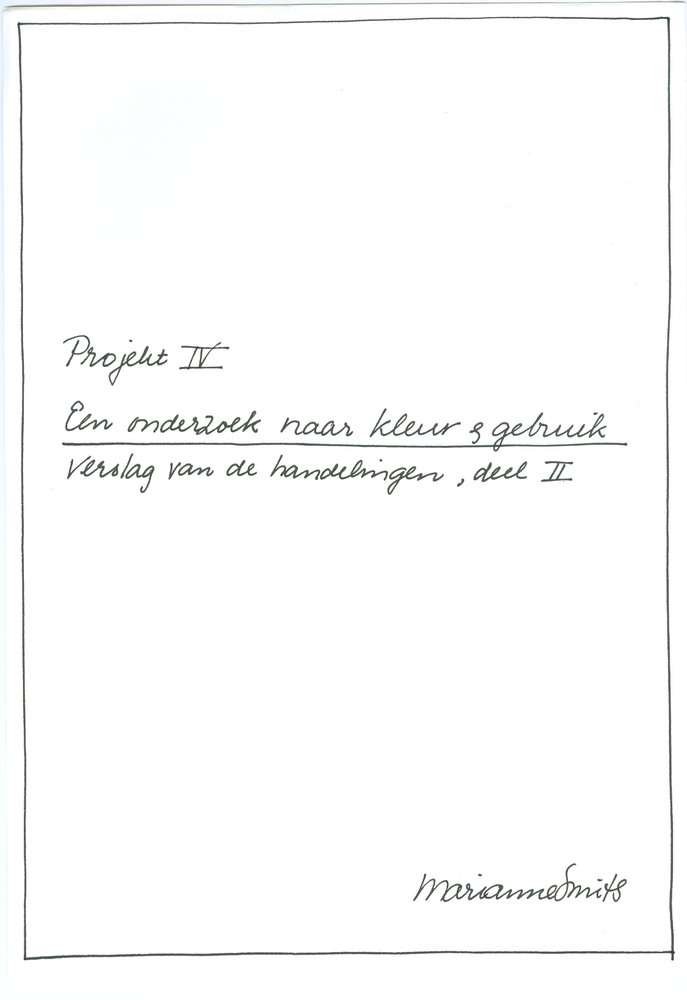 Projekt IV
Een onderzoek naar kleur & gebruik
Verslag van de handelingen, deel II
Marianne Smits